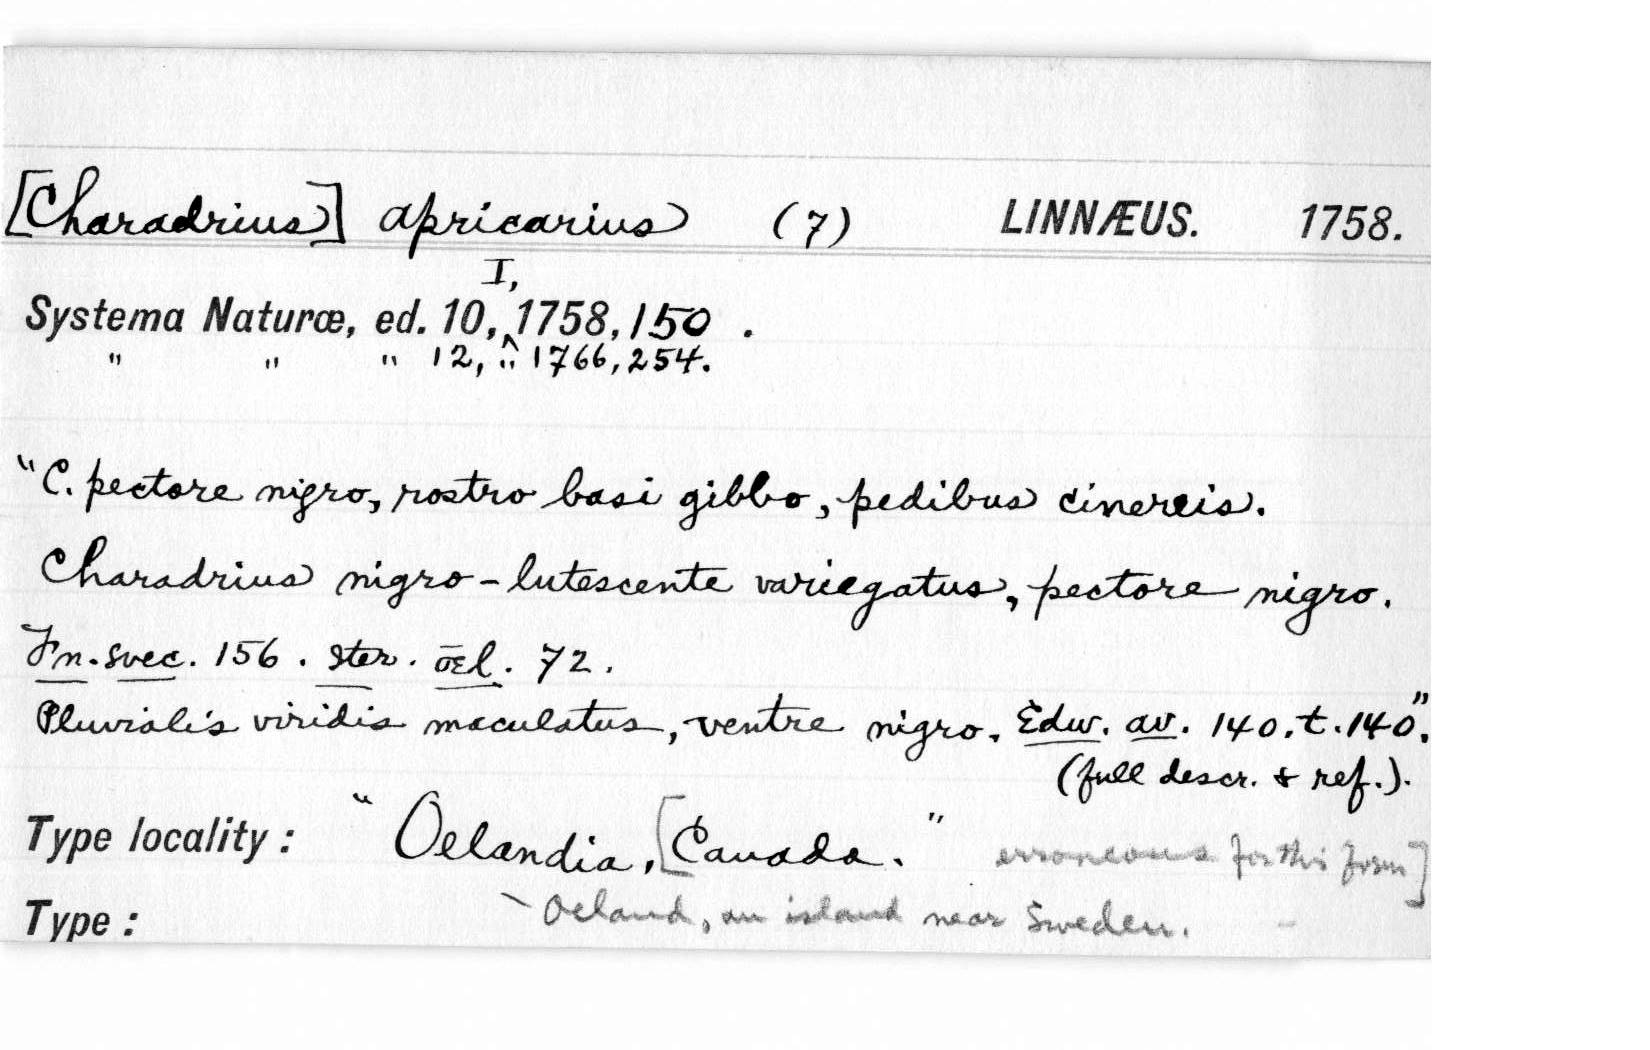 [Charadrius] apricarius (7) LINNÆUS. 1758.
I,
Systema Naturæ, ed. 10,^1758, 150 .
" " " 12, " 1766, 254.
"C. pectore nigro, rostro basi gibbo, pedibus cinereis.
Charadrius nigro-lutescente variegatus, pectore nigro.
Fn. svec. 156. Iter. œl. 72.
Pluvialis viridis maculatus, ventre nigro. Edw. av. 140. t. 140".
(full descr. & ref.).
Type locality: "Oelandia, [Canada." erroneous for this form]
Oeland, an island near Sweden.
Type: